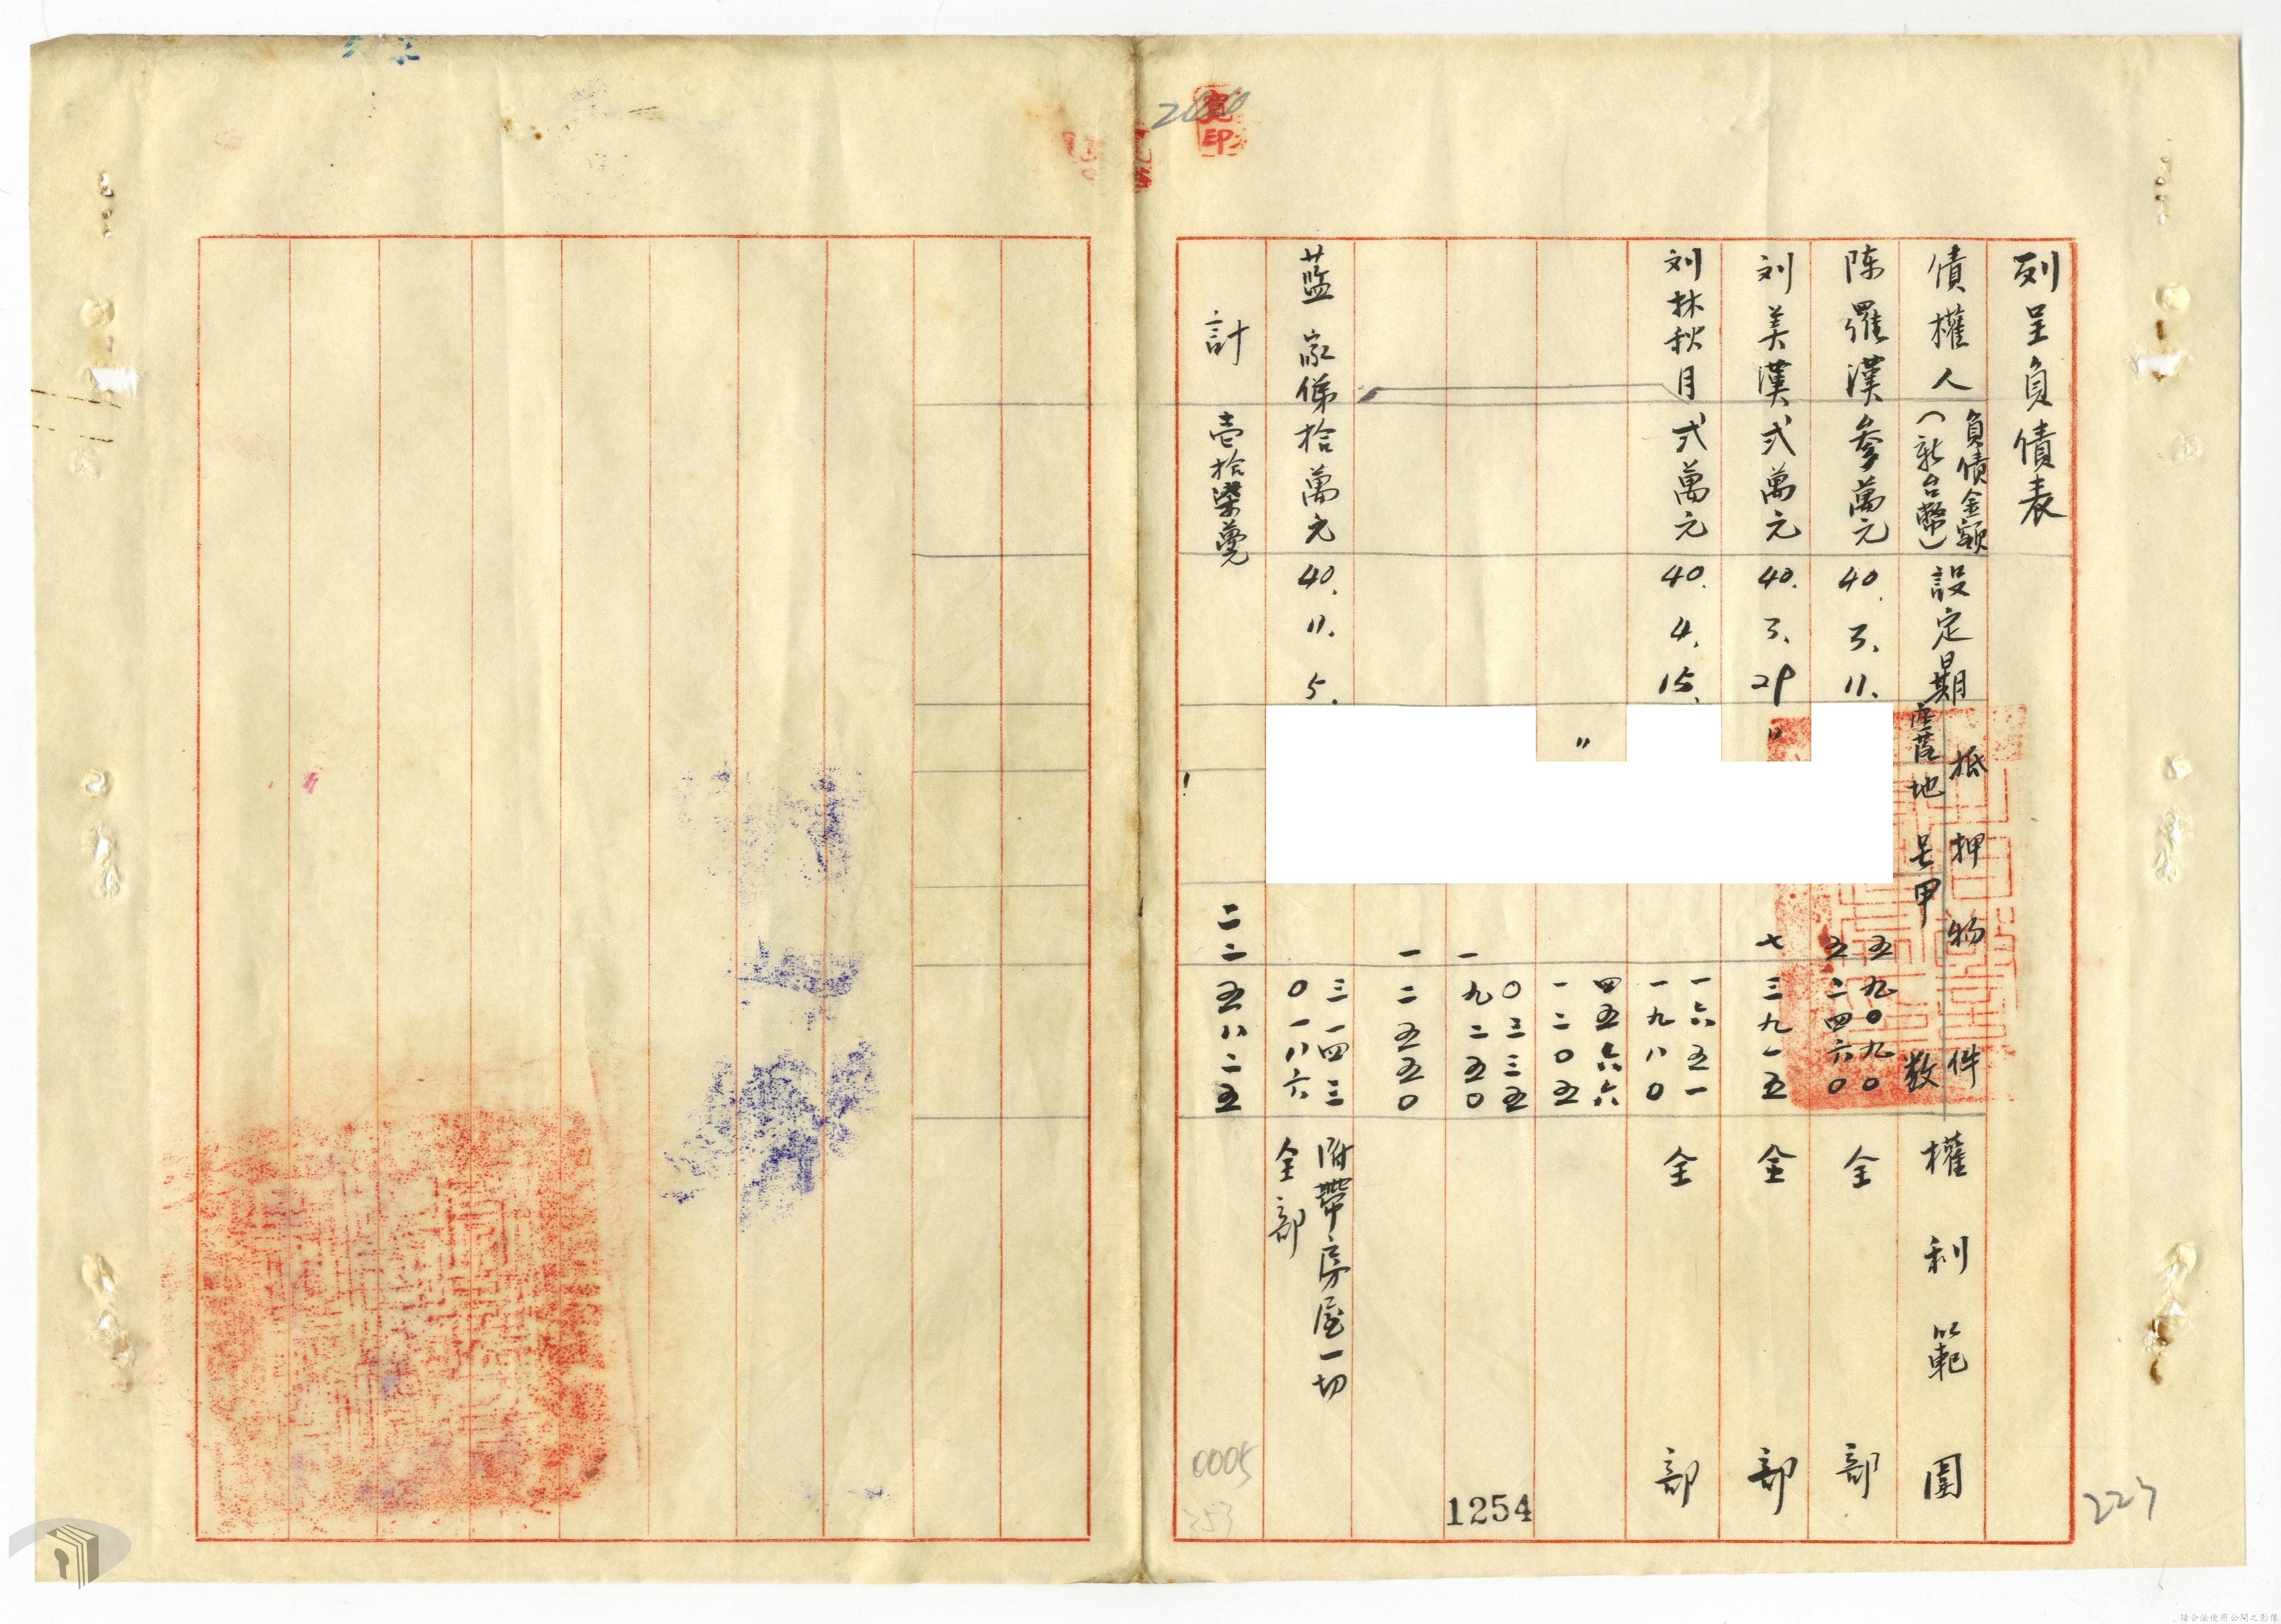 列呈負債表
債權人
負債金額
(新台幣)
設定期
抵押物件
座落地号甲数
權利範圍
陈羅漢 参萬元 40. 3. 11. 五九〇九〇 全部
五二四六〇
刘美漢 弍萬元 40. 3. 29 〃 七三九一五 全部
刘林秋月 弍萬元 40. 4. 15. 一六五一 全部
一九八〇
〃 四五六六
一二〇五
〇三三五
一九二五〇
一二五五〇
藍家俤 拾萬元 40. 11. 5. 三一四三 附帶房屋一切
〇一八六 全部
計 壱拾柒萬元 二二五八二五
印
1254
0005
253
227
請合法使用公開之影像